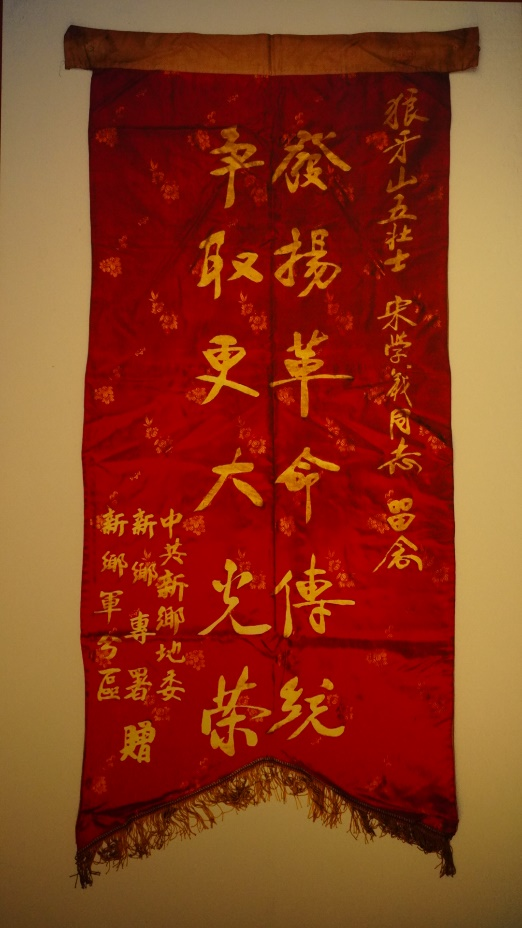 狼牙山五壮士 宋学義同志 留念
發揚革命傳統
争取更大光荣
中共新鄉地委
新鄉專署
新鄉軍分區
贈